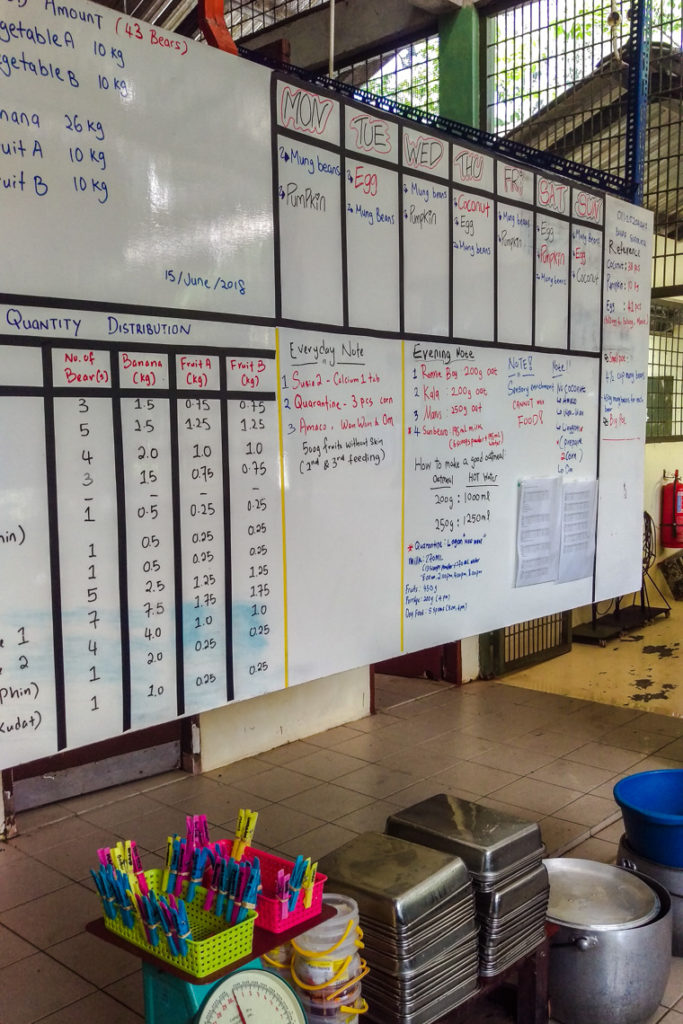 AMOUNT (43 Bears)
getable A 10 kg
getable B 10 kg
nana 26 kg
uit A 10 kg
uit B 10 kg
15/June/2018
MON
Mung beans
Pumpkin
TUE
Egg
Mung Beans
WED
Mung beans
Pumpkin
THU
Coconut
Egg
Mung beans
FRI
Mung beans
Pumpkin
SAT
Egg
Pumpkin
Mung beans
SUN
Mung beans
Egg
Coconut
Reference
Coconut : 38 pcs
Pumpkin : 10 kg
Egg : 41 pcs
Small pot
Big Pot
QUANTITY DISTRIBUTION
No. of Bear(s) Banana (kg) Fruit A (kg) Fruit B (kg)
3 1.5 0.75 0.75
5 2.5 1.25 1.25
4 2.0 1.0 1.0
3 15 0.75 0.75
- - - -
1 0.5 0.25 0.25
hin)
1 0.5 0.25 0.25
1 0.5 0.25 0.25
5 2.5 1.25 1.25
7 7.5 1.75 1.75
e 1 4 4.0 1.0 1.0
e 2 1 2.0 0.25 0.25
phin) 1 1.0 0.25 0.25
kudat)
Everyday Note
1 Susie 2 - Calcium 1 tab
2 Quarantine - 3 pcs corn
3 Amaco, Wan Wan & Om
500g fruits without skin
(2nd & 3rd feeding)
Evening Note
1 Romie Boy 200g oat
2 Kala : 200g oat
3 Manis 250g oat
* 4 Sunbearo
How to make a good oatmeal:
Oatmeal HOT Water
200g : 1000ml
250g : 1250ml
* Quarantine : Logan
Milk : 170ml
Fruits : 450g
Porridge : 200g (4 pm)
Dog Food : 8 spoons
NOTE!
Sensory enrichment
CANNOT mix
FOOD!
Note !!
No COCONUT
Om